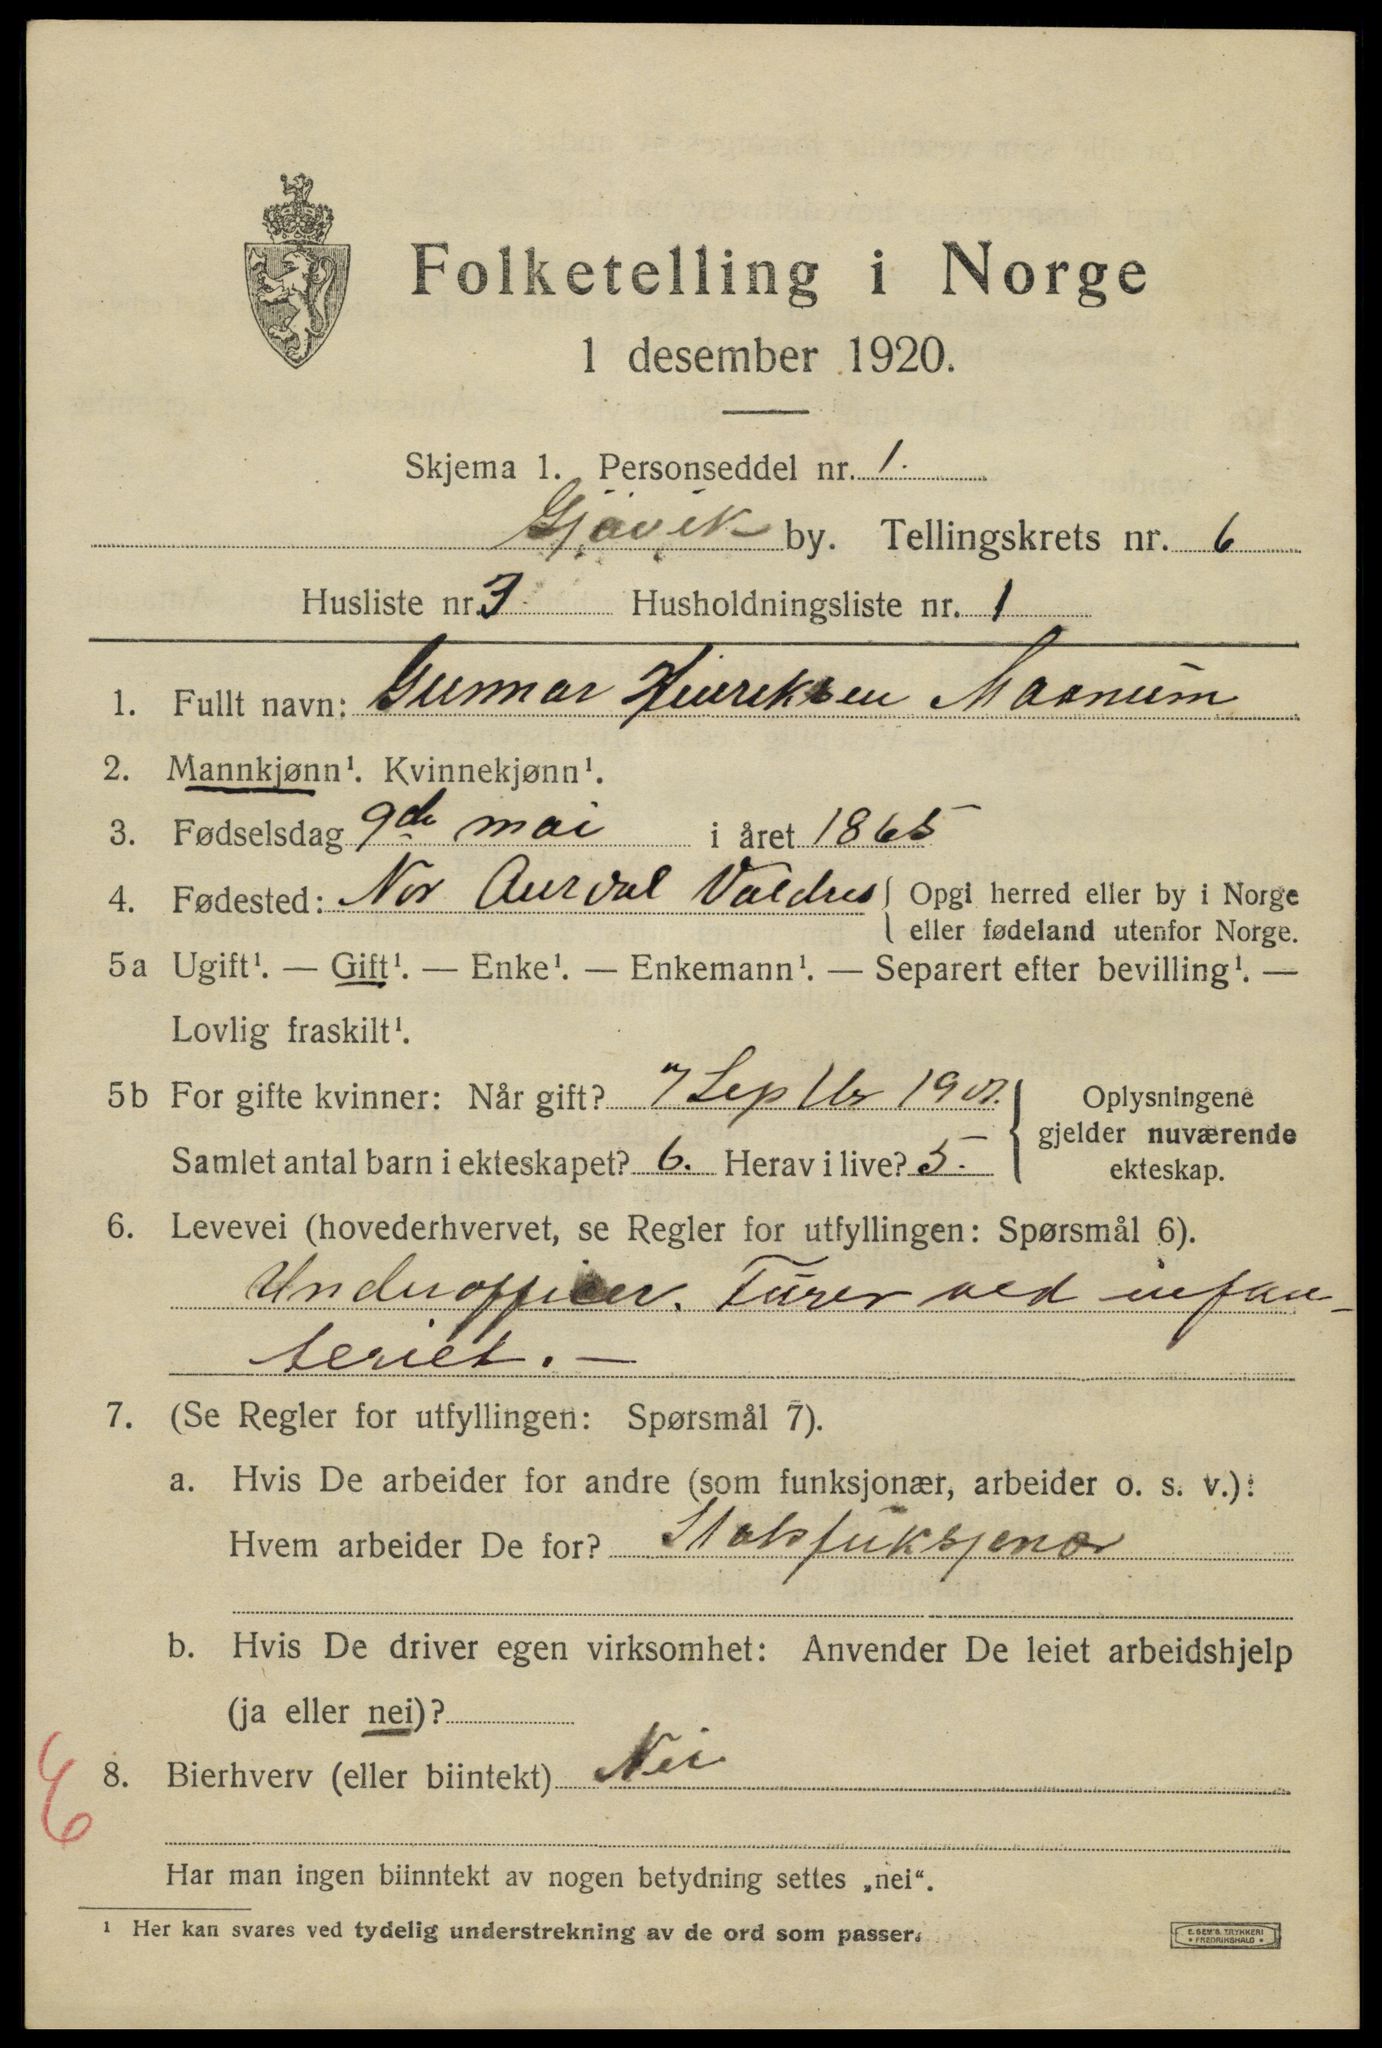 Folketelling i Norge
1 desember 1920.
Skjema 1. Personseddel nr. 1.
Gjøvik by. Tellingskrets nr. 6
Husliste nr. 3. Husholdningsliste nr. 1
1. Fullt navn: Gunnar Henriksen Maanum
2. Mannkjønn¹. Kvinnekjønn¹.
3. Fødselsdag 9de mai i året 1865
4. Fødested: Nor Aurdal Valdres { Opgi herred eller by i Norge
eller fødeland utenfor Norge.
5a Ugift¹. — Gift¹. — Enke¹. — Enkemann¹. — Separert efter bevilling¹. —
Lovlig fraskilt¹.
5b For gifte kvinner: Når gift? 7 Septbr 1901. Oplysningene
gjelder nuværende
Samlet antal barn i ekteskapet? 6. Herav i live? 5. ekteskap.
6. Levevei (hovederhvervet, se Regler for utfyllingen: Spørsmål 6).
Underofficer. Furer ved infan-
teriet. —
7. (Se Regler for utfyllingen: Spørsmål 7).
a. Hvis De arbeider for andre (som funksjonær, arbeider o. s. v.):
Hvem arbeider De for? Statsfuksjonær
b. Hvis De driver egen virksomhet: Anvender De leiet arbeidshjelp
(ja eller nei)?
8. Bierhverv (eller biintekt) Nei
Har man ingen biinntekt av nogen betydning settes „nei“.
¹ Her kan svares ved tydelig understrekning av de ord som passer.
E. SEM'S TRYKKERI
* FREDRIKSHALD *